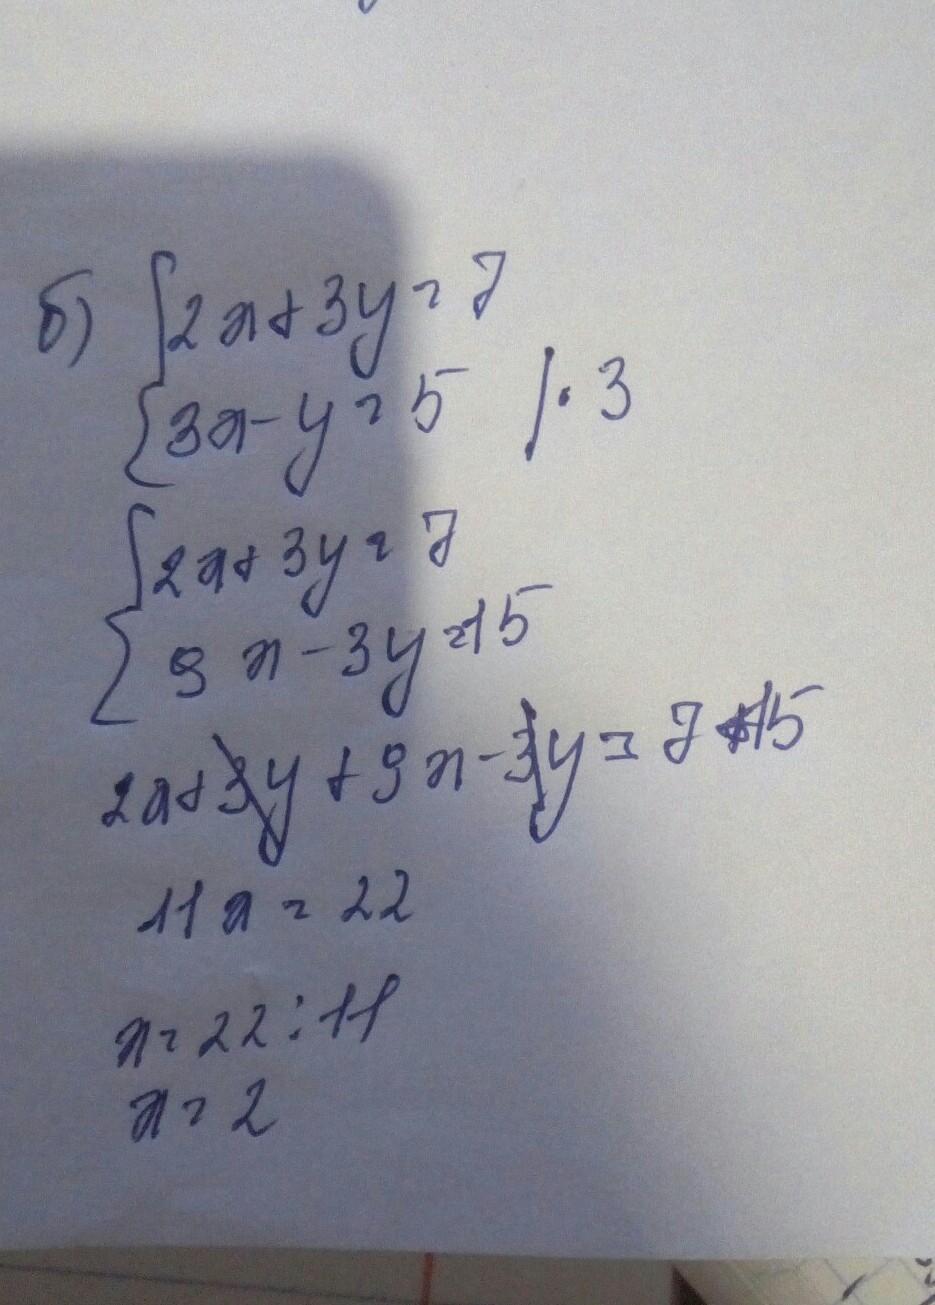 б) {2x+3y=7
{3x-y=5 |·3
{2x+3y=7
{9x-3y=15
2x+3y+9x-3y=7+15
11x=22
x=22:11
x=2